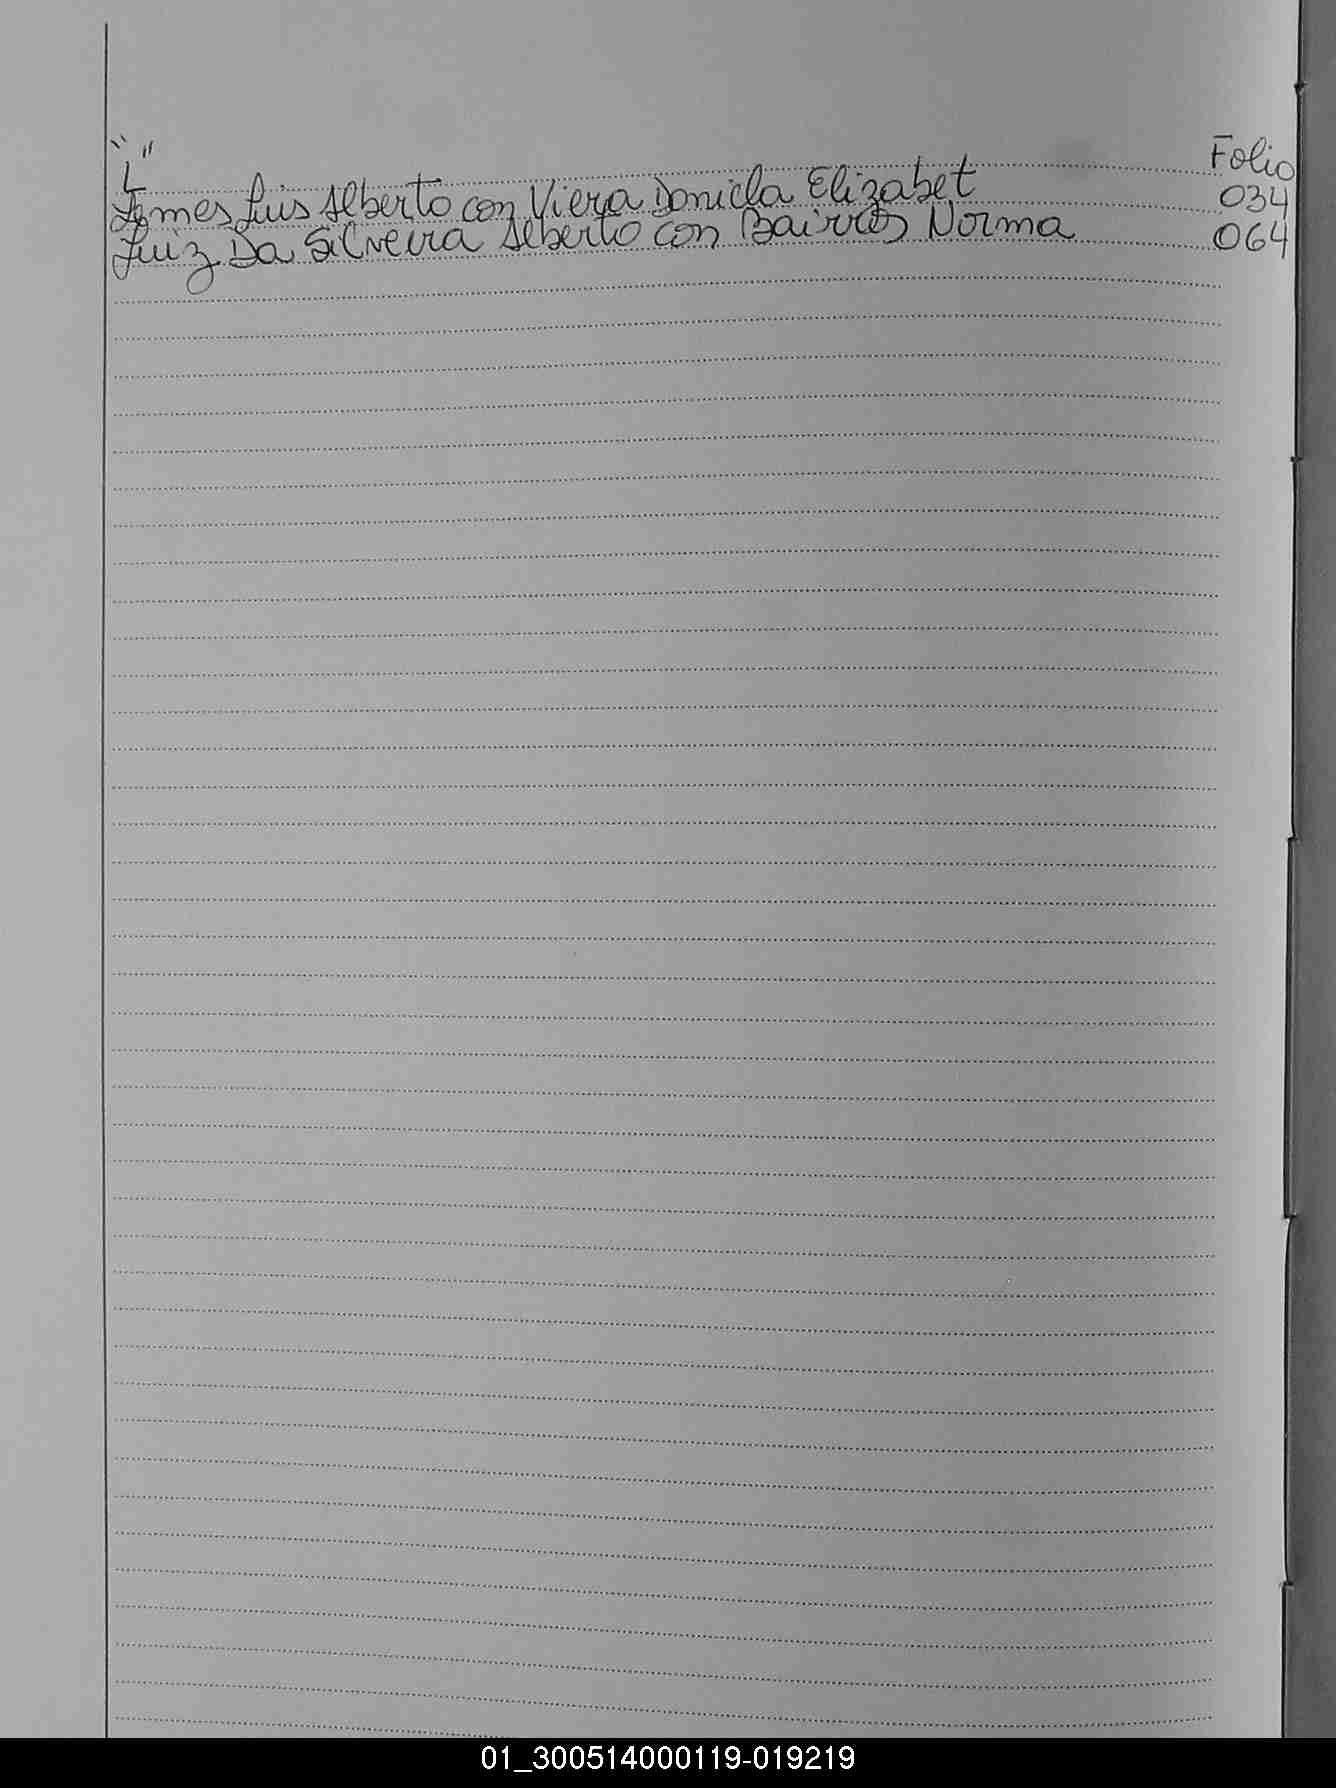 "L" Folio
Lemes Luis Alberto con Viera Daniela Elizabet 034
Luiz Da Silveira Alberto con Bairros Norma 064
01_300514000119-019219